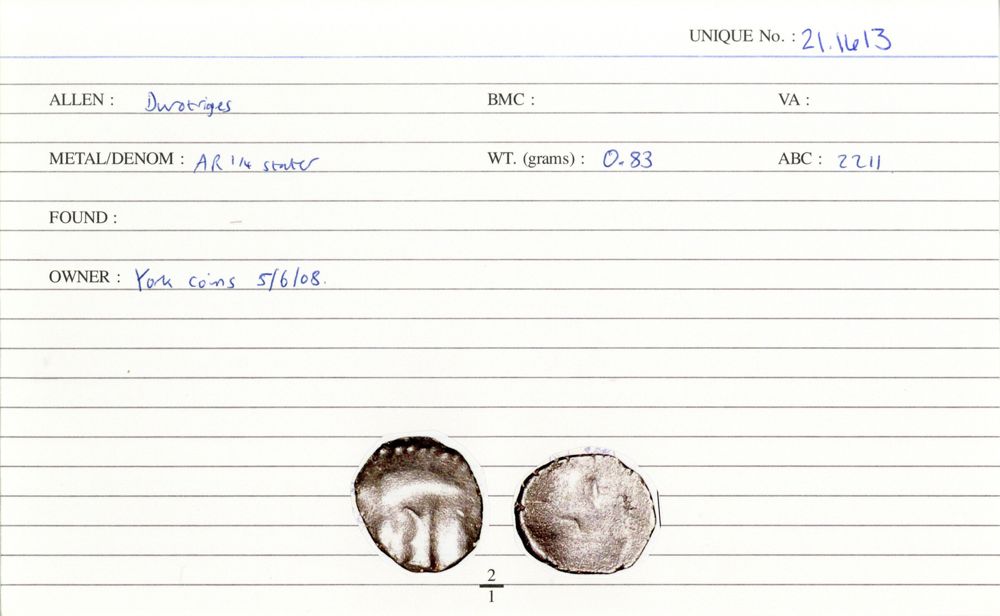 UNIQUE No. : 21.1613
ALLEN : Durotriges BMC : VA :
METAL/DENOM : AR 1/4 stater WT. (grams) : 0.83 ABC : 2211
FOUND : –
OWNER : York coins 5/6/08.
2
1